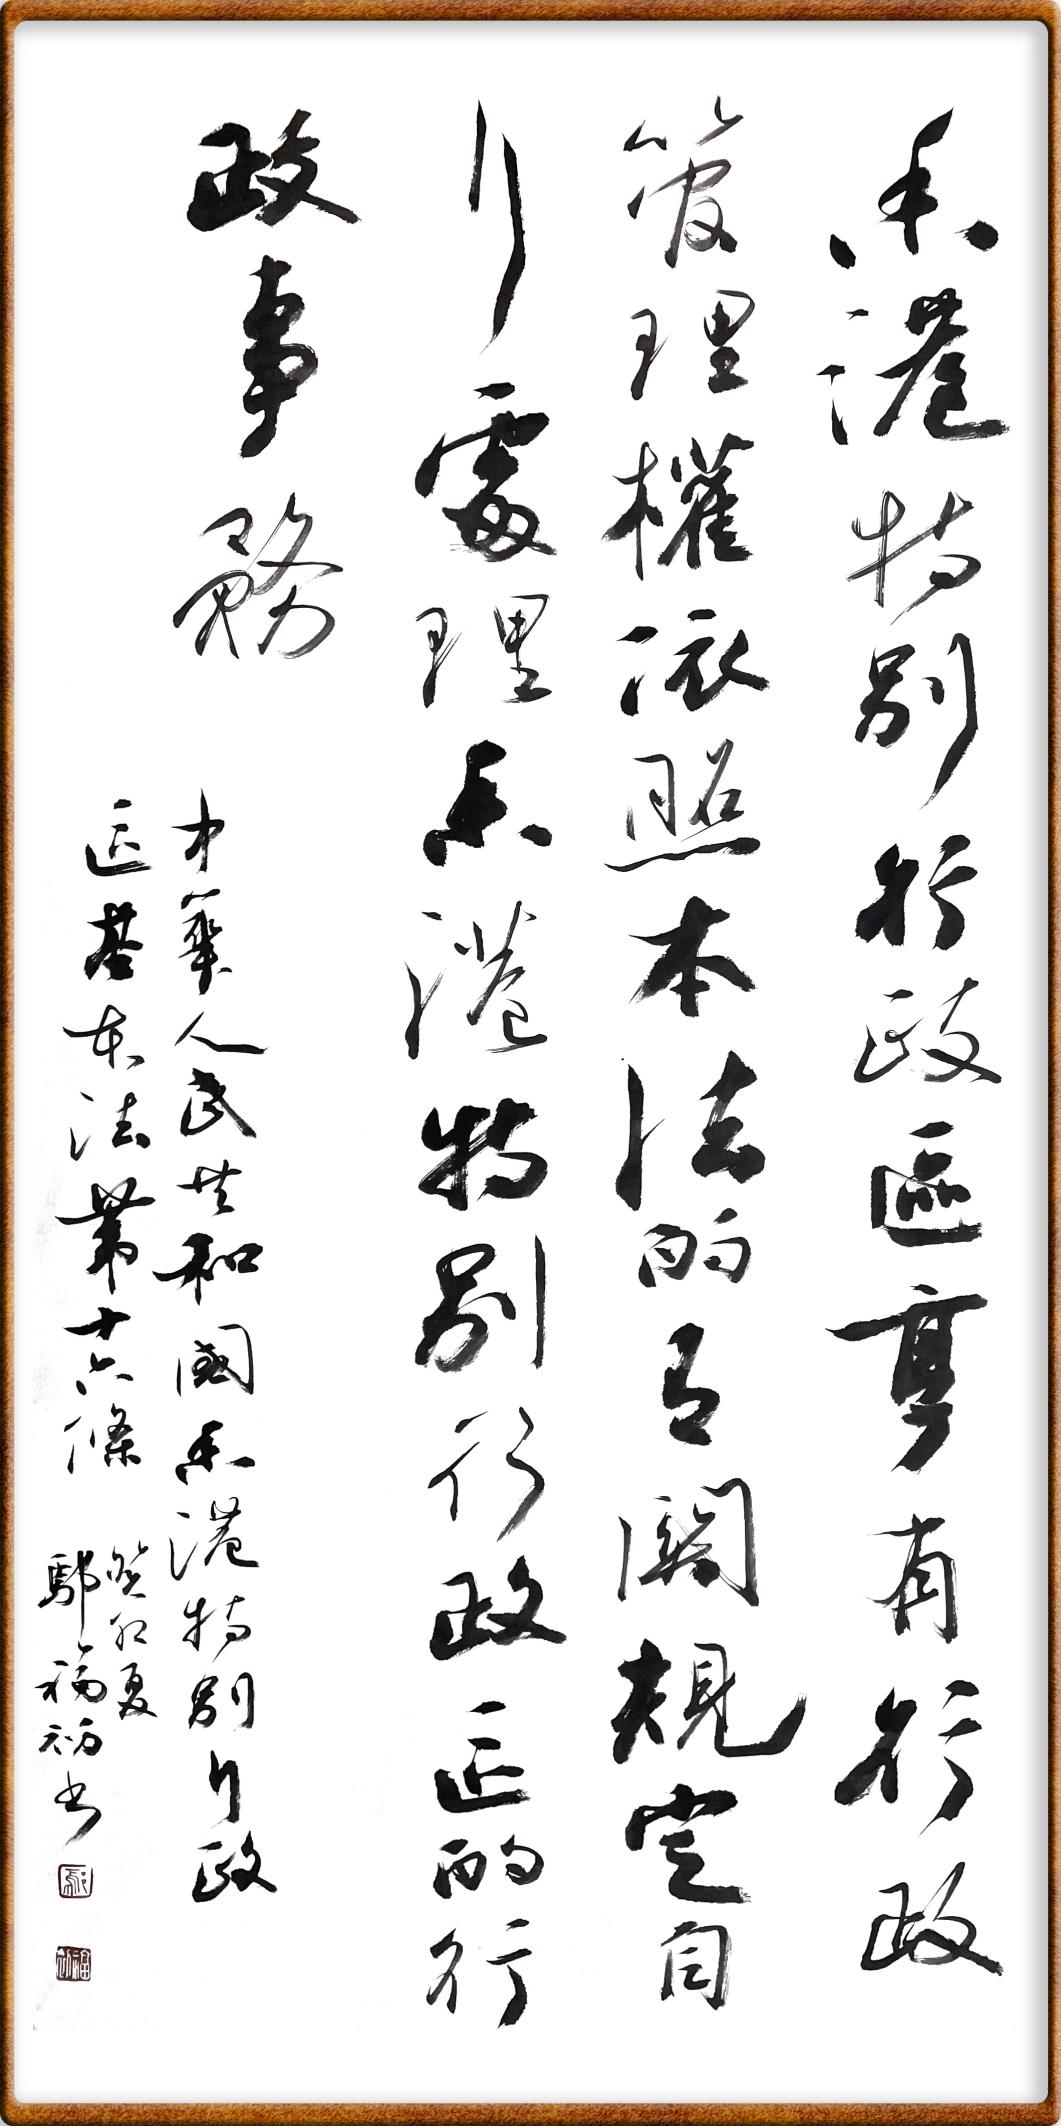 香港特別行政區享有行政
管理權依照本法的有關規定自
行處理香港特別行政區的行
政事務
中華人民共和國香港特別行政
區基本法第十六條
癸卯夏
鄢福初書
鄢
福初